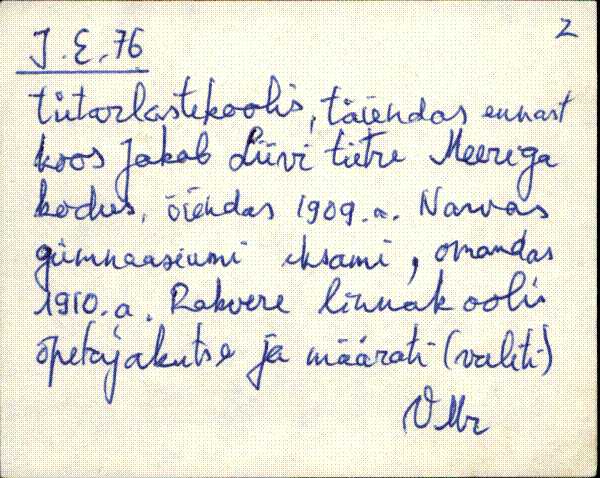 J.E.76
2
tütarlastekoolis, täiendas ennast
koos Jakob Liivi tütre Meeriga
kodus, õiendas 1909.a. Narvas
gümnaasiumi eksami, omandas
1910.a. Rakvere linnakoolis
õpetajakutse ja määrati (valiti)
VMr